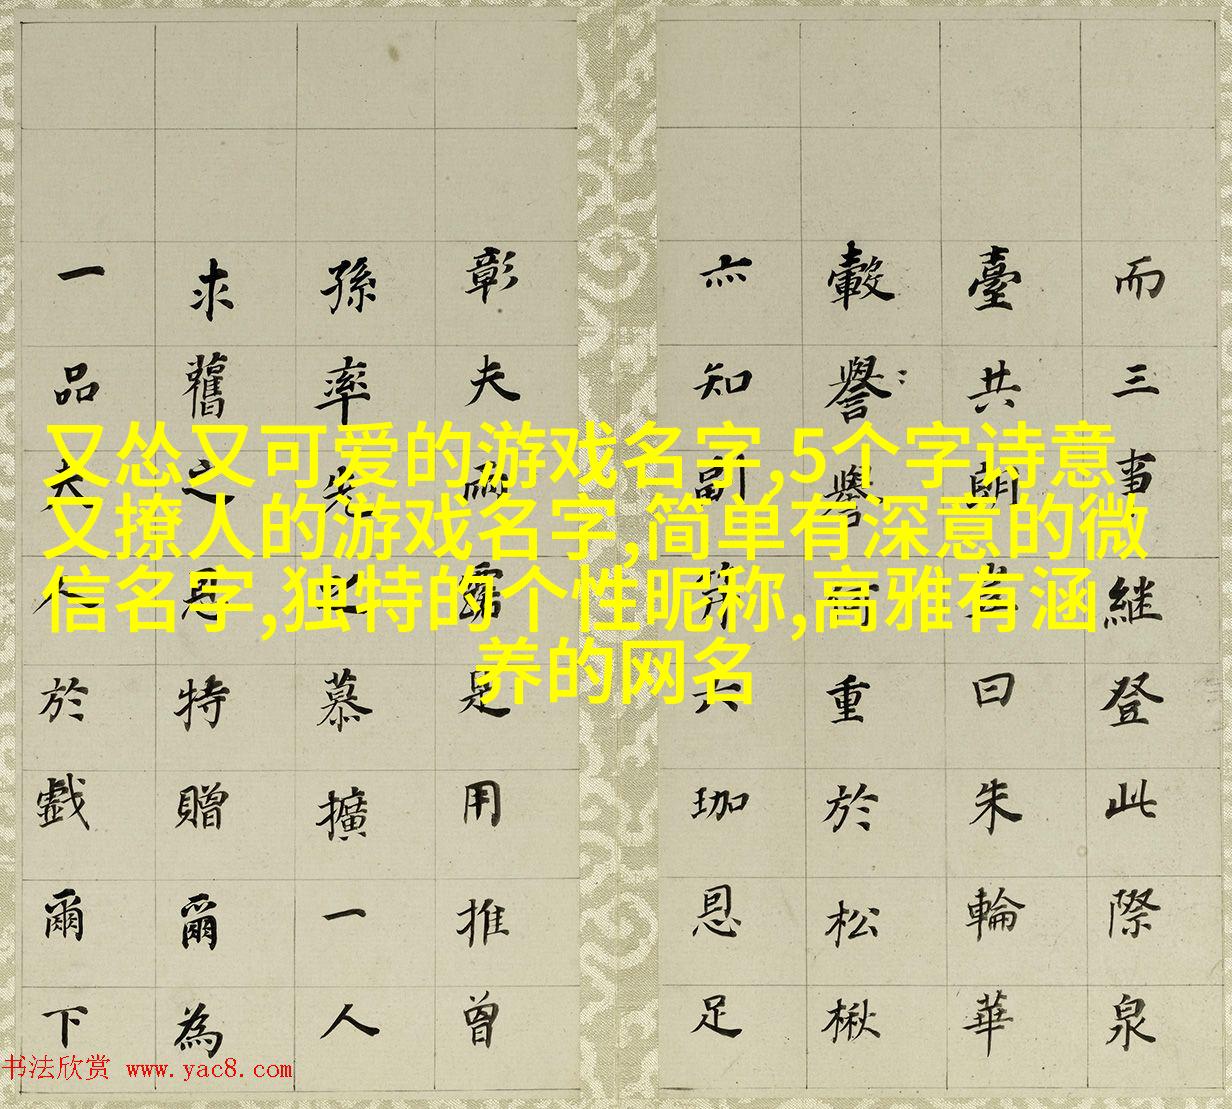 又怂又可爱的游戏名字,5个字诗意
又撩人的游戏名字,简单有深意的微
信名字,独特的个性昵称,高雅有涵
养的网名
而三事継登此際泉
臺共朝曰朱輪華
轂譽譽重於松楸
亦知副筓六珈恩足
彰夫是用推曾
孫率先之慕擴一人
求舊之恩特贈爾為
一品夫人於戲爾下
书法欣赏 www.yac8.com